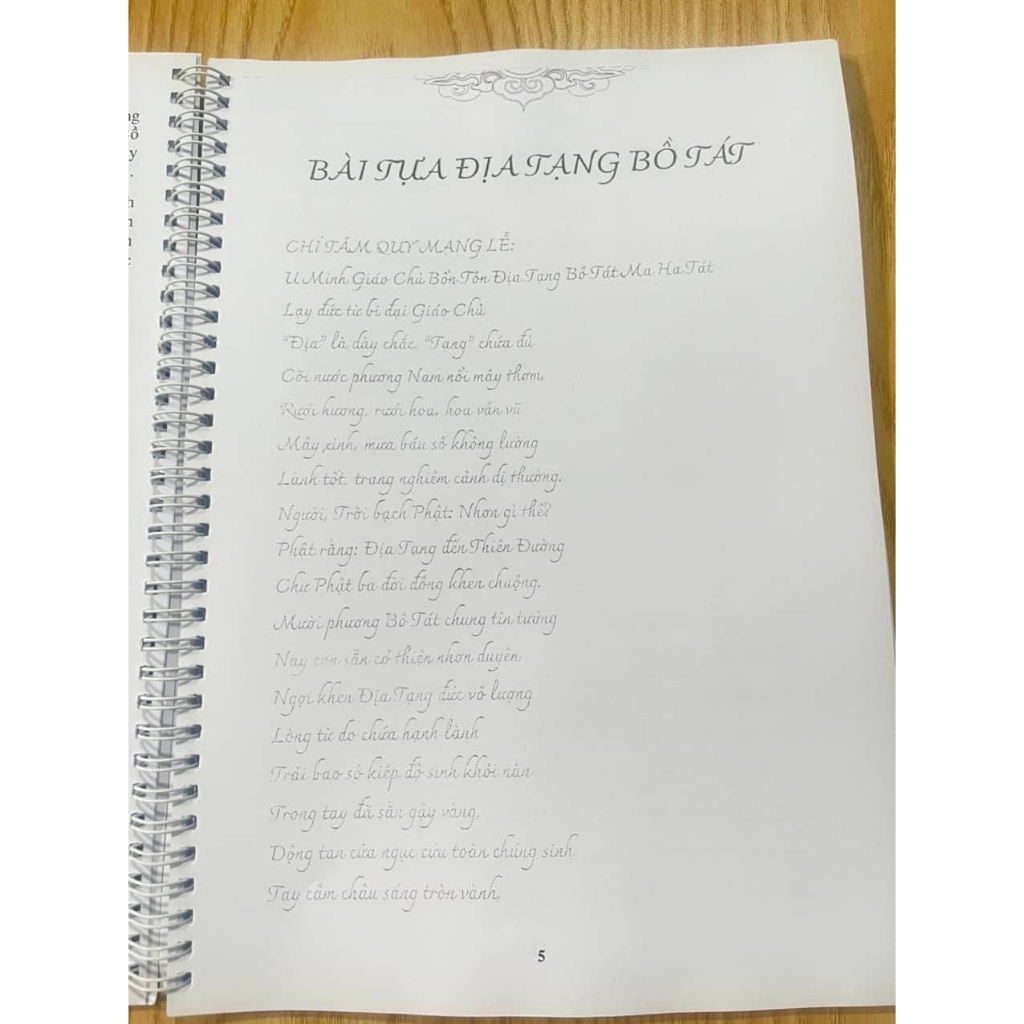 ng
ồ
y
.
h
n
n
:
BÀI TỰA ĐỊA TẠNG BỒ TÁT
CHÍ TÂM QUY MẠNG LỄ:
U Minh Giáo Chủ Bổn Tôn Địa Tạng Bồ Tát Ma Ha Tát
Lạy đức từ bi đại Giáo Chủ
"Địa" là dày chắc, "Tạng" chứa đủ
Cõi nước phương Nam nổi mây thơm,
Rưới hương, rưới hoa, hoa vần vũ
Mây xinh, mưa báu số không lường
Lành tốt, trang nghiêm cảnh dị thường.
Người, Trời bạch Phật: Nhơn gì thế?
Phật rằng: Địa Tạng đến Thiên Đường
Chư Phật ba đời đồng khen chuộng.
Mười phương Bồ Tát chung tin tưởng
Nay con sẵn có thiện nhơn duyên
Ngợi khen Địa Tạng đức vô lượng
Lòng từ do chứa hạnh lành
Trải bao số kiếp độ sinh khỏi nàn
Trong tay đã sẵn gậy vàng,
Dộng tan cửa ngục cứu toàn chúng sinh
Tay cầm châu sáng tròn vành,
5